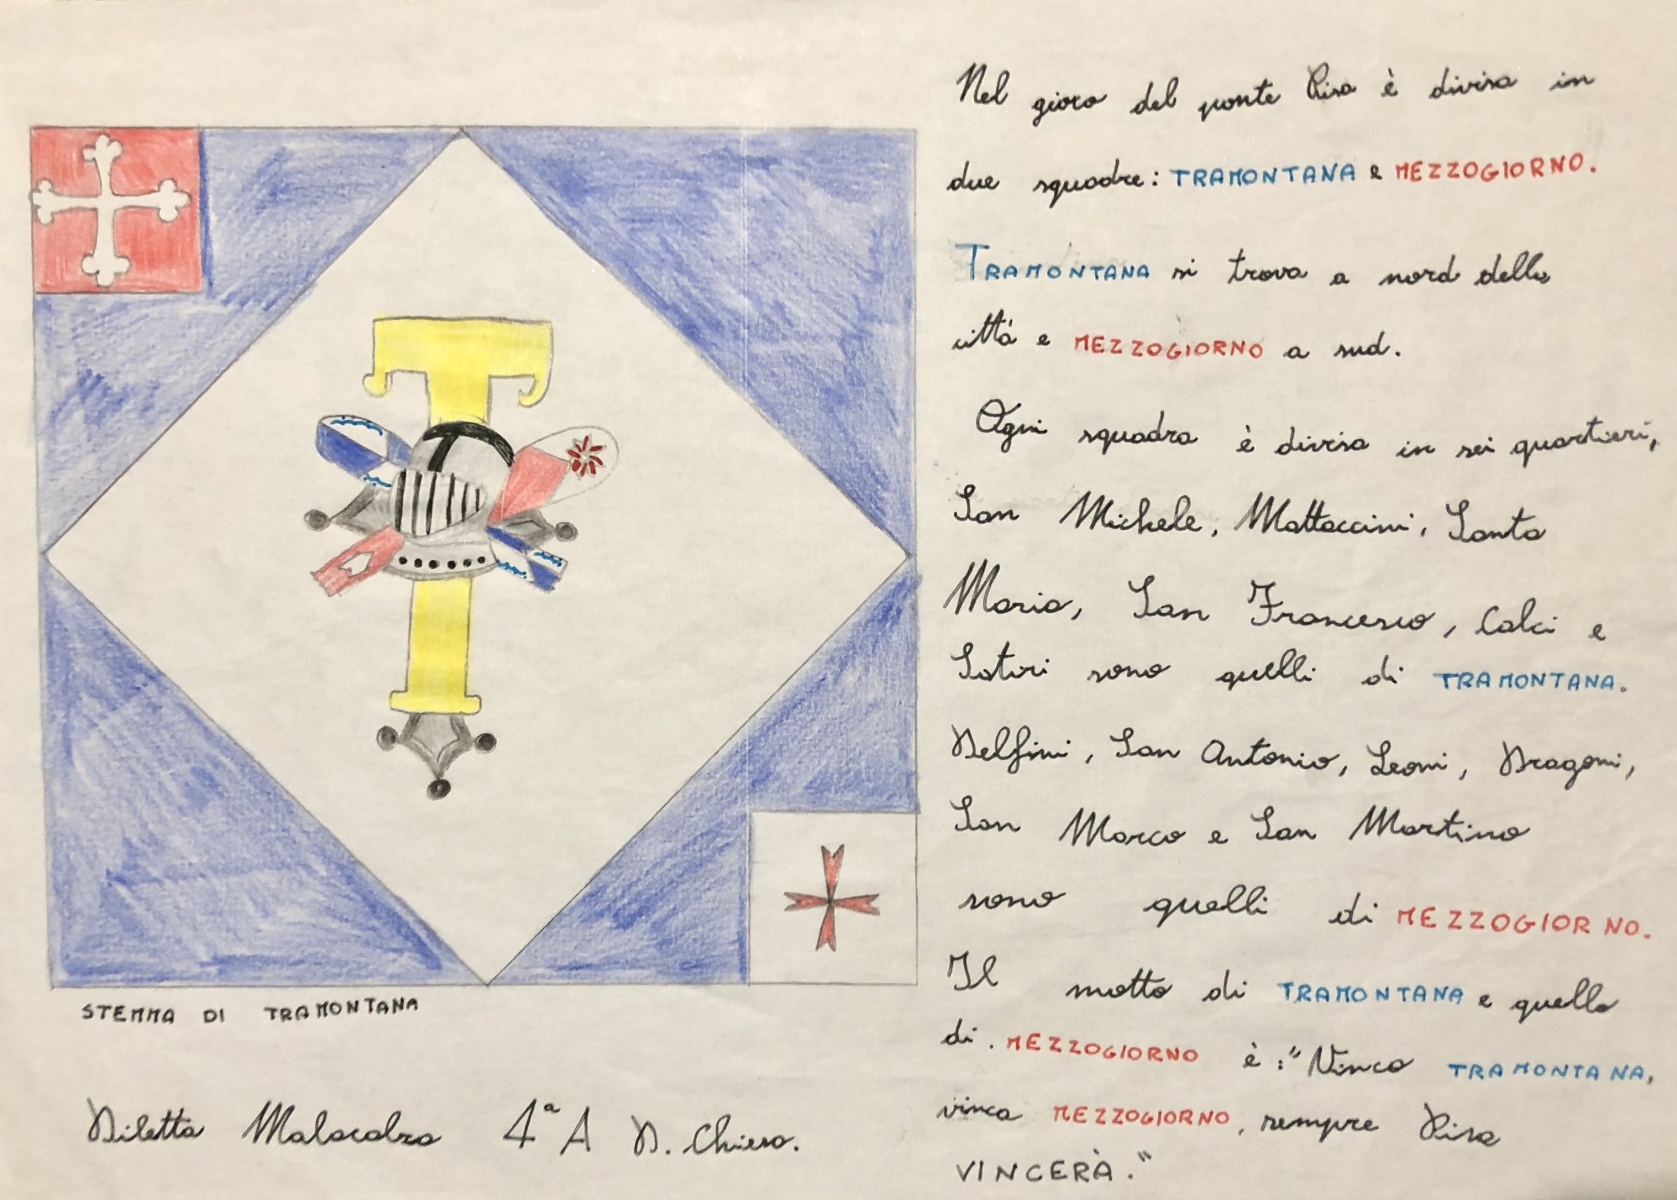 STEMMA DI TRAMONTANA
Diletta Malacalza 4ª A D. Chiesa.
Nel gioco del ponte Pisa è divisa in
due squadre: TRAMONTANA e MEZZOGIORNO.
TRAMONTANA si trova a nord della
città e MEZZOGIORNO a sud.
Ogni squadra è divisa in sei quartieri,
San Michele, Mattaccini, Santa
Maria, San Francesco, Calci e
Satiri sono quelli di TRAMONTANA.
Delfini, San Antonio, Leoni, Dragoni,
San Marco e San Martino
sono quelli di MEZZOGIORNO.
Il motto di TRAMONTANA e quello
di. MEZZOGIORNO è: "Vinca TRAMONTANA,
vinca MEZZOGIORNO, sempre Pisa
VINCERÀ."